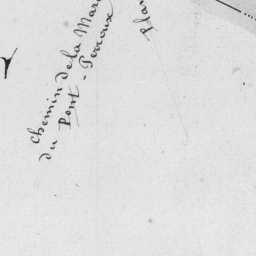 Chemin de la Mar
du Pont - Perroux
Plan